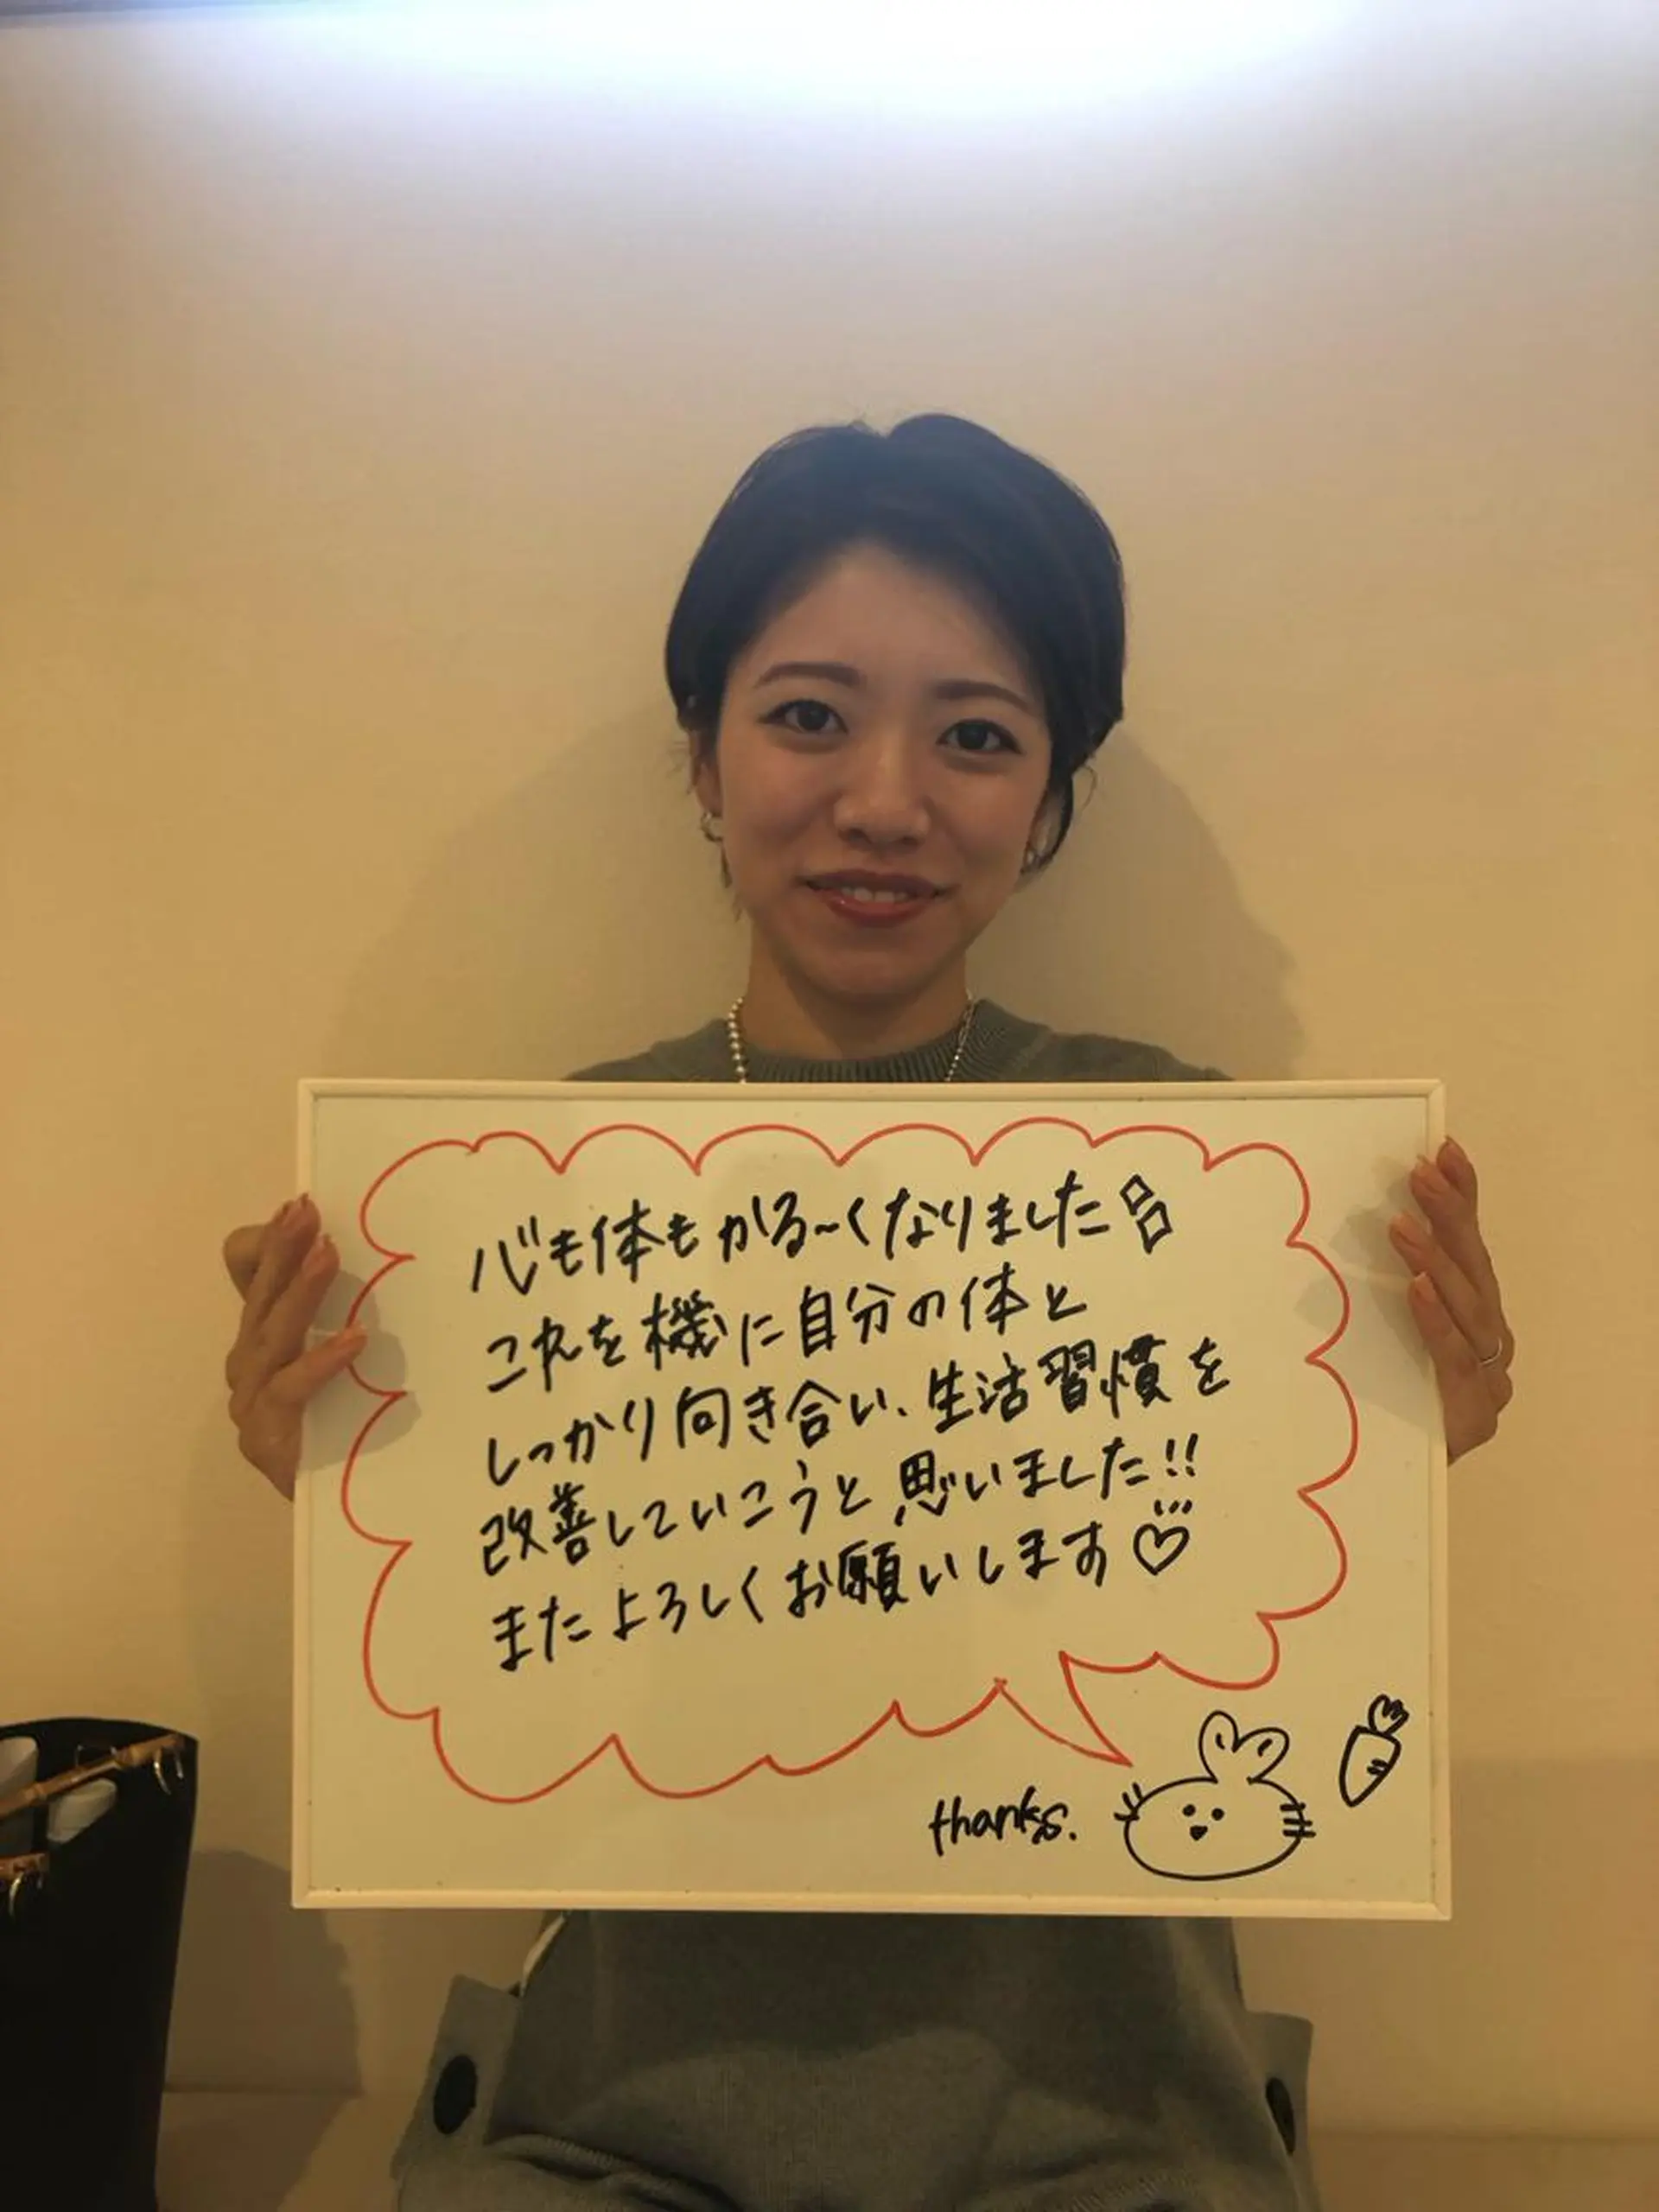 心も体もかる〜くなりました
これを機に自分の体と
しっかり向き合い、生活習慣を
改善していこうと思いました!!
またよろしくお願いします♡
thanks.